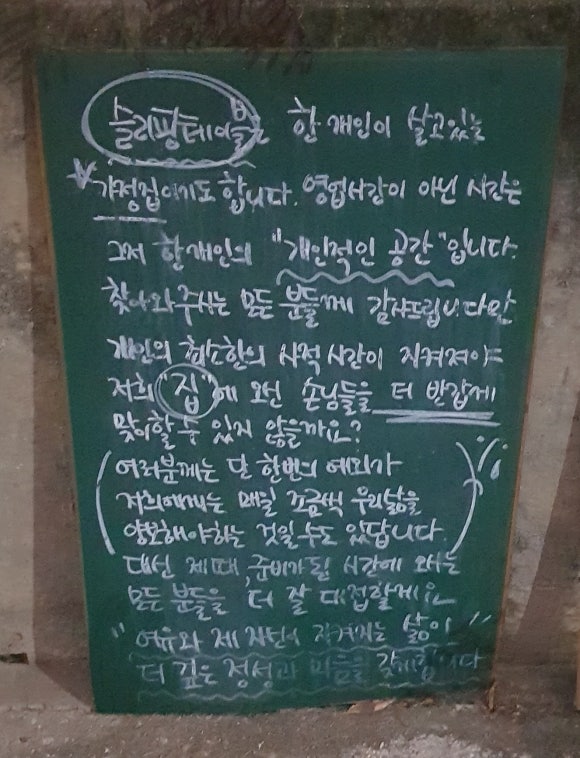 슬리핑테이블은 한 개인이 살고있는
가정집이기도 합니다. 영업시간이 아닌 시간은
그저 한 개인의 "개인적인 공간"입니다.
찾아와주시는 모든 분들께 감사드립니다만
개인의 최소한의 사적 시간이 지켜져야
저희 "집"에 오신 손님들을 더 반갑게
맞이할 수 있지 않을까요?
(여러분께는 단 한번의 예외가
저희에게는 매일 조금씩 우리 삶을
양보해야하는 것일 수도 있답니다.)
대신 제때, 준비가 된 시간에 오시는
모든 분들을 더 잘 대접할게요
"여유와 제 자신이 지켜지는 삶이"
더 깊은 정성과 마음을 갖게합니다